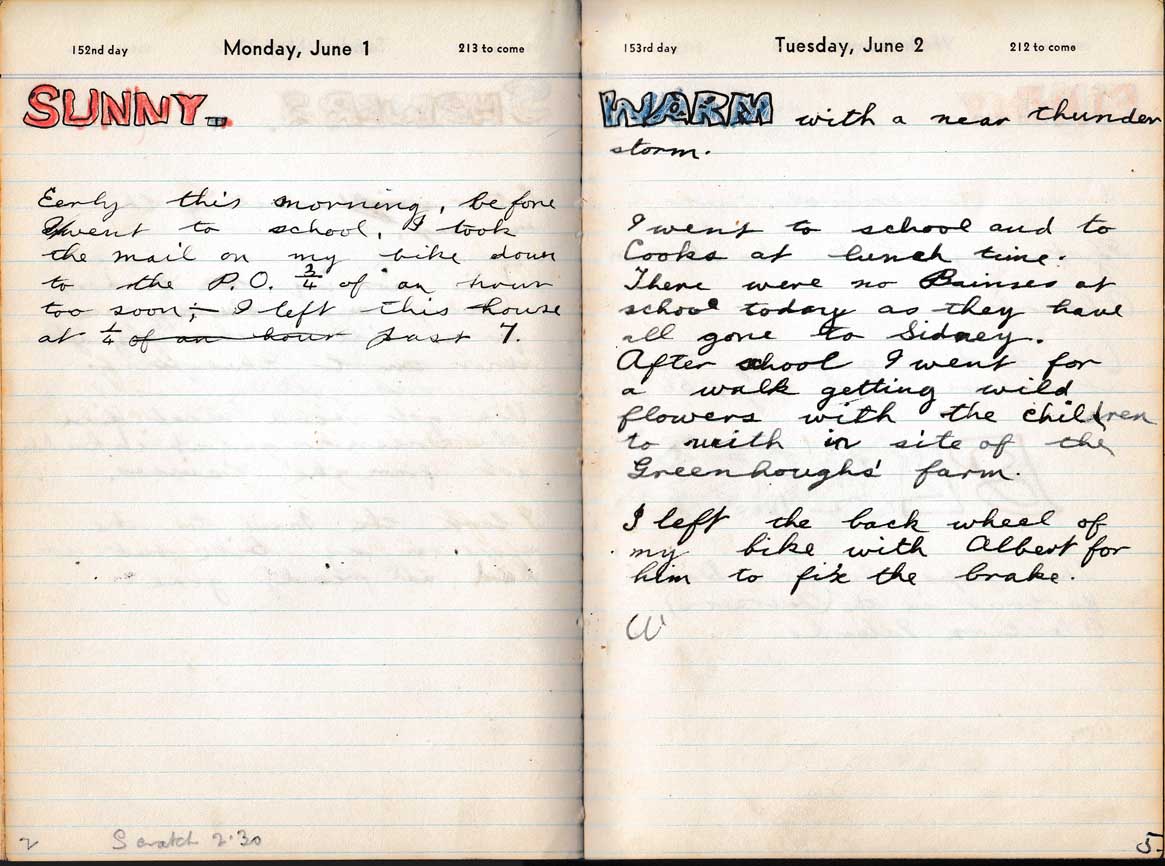 152nd day Monday, June 1 213 to come
SUNNY.
Eerly this morning, before
I went to school, I took
the mail on my bike down
to the P.O. 3/4 of an hour
too soon; I left this house
at 1/4 of an hour past 7.
2 Scratch 2·30
153rd day Tuesday, June 2 212 to come
WARM with a near thunder
storm.
I went to school and to
Cooks at lunch time.
There were no Bainses at
school today as they have
all gone to Sidney.
After school I went for
a walk getting wild
flowers with the children
to with in site of the
Greenhoughs' farm.
I left the back wheel of
my bike with Albert for
him to fix the brake.
5